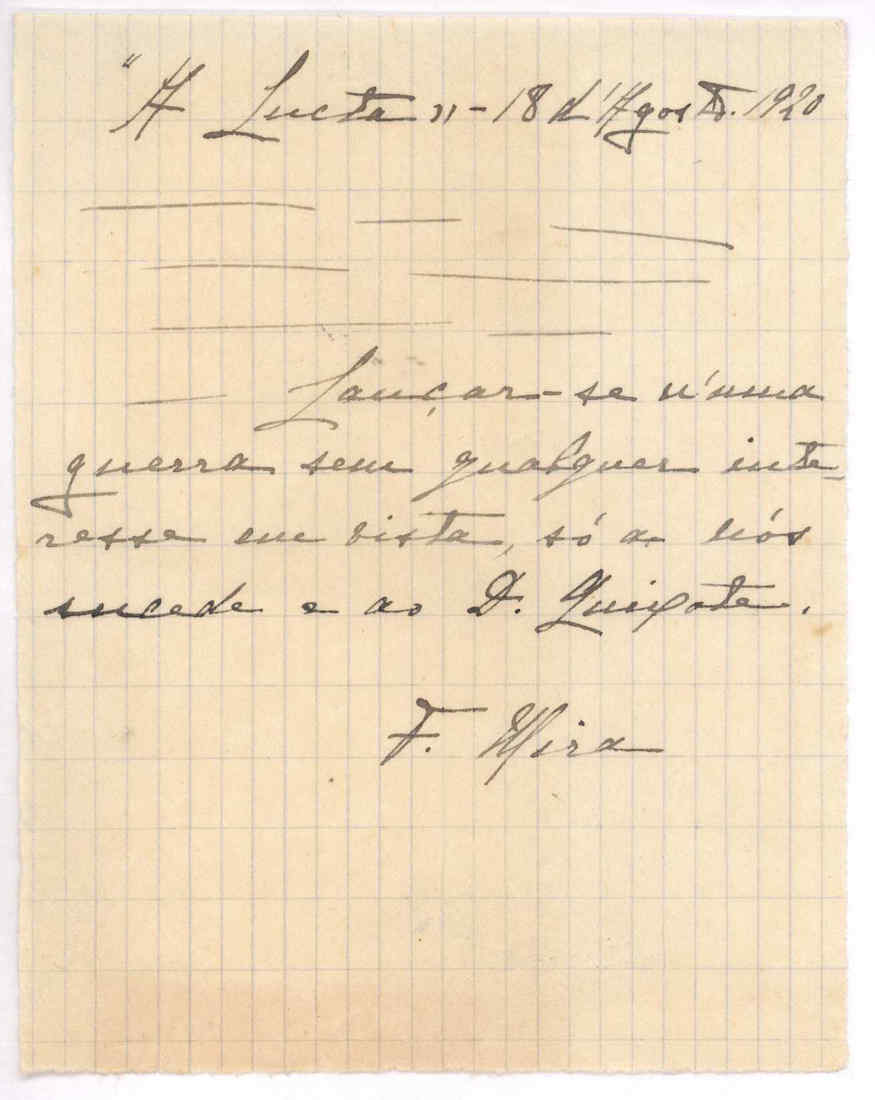 "A Lucta" - 18 d'Agosto. 1920
Lançar-se n'uma
guerra sem qualquer inte-
resse em vista, só a nós
sucede e ao D. Quixote.
F. Mira